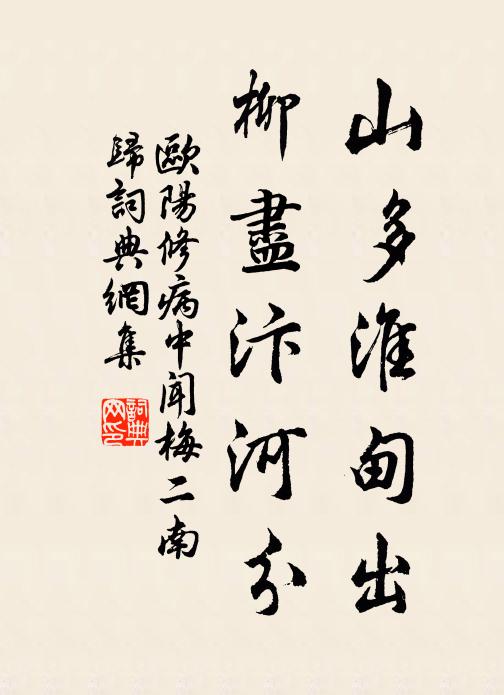 山多淮甸出
柳盡汴河分
歐陽修病中聞梅二南
歸詞典網集
詞典
网印